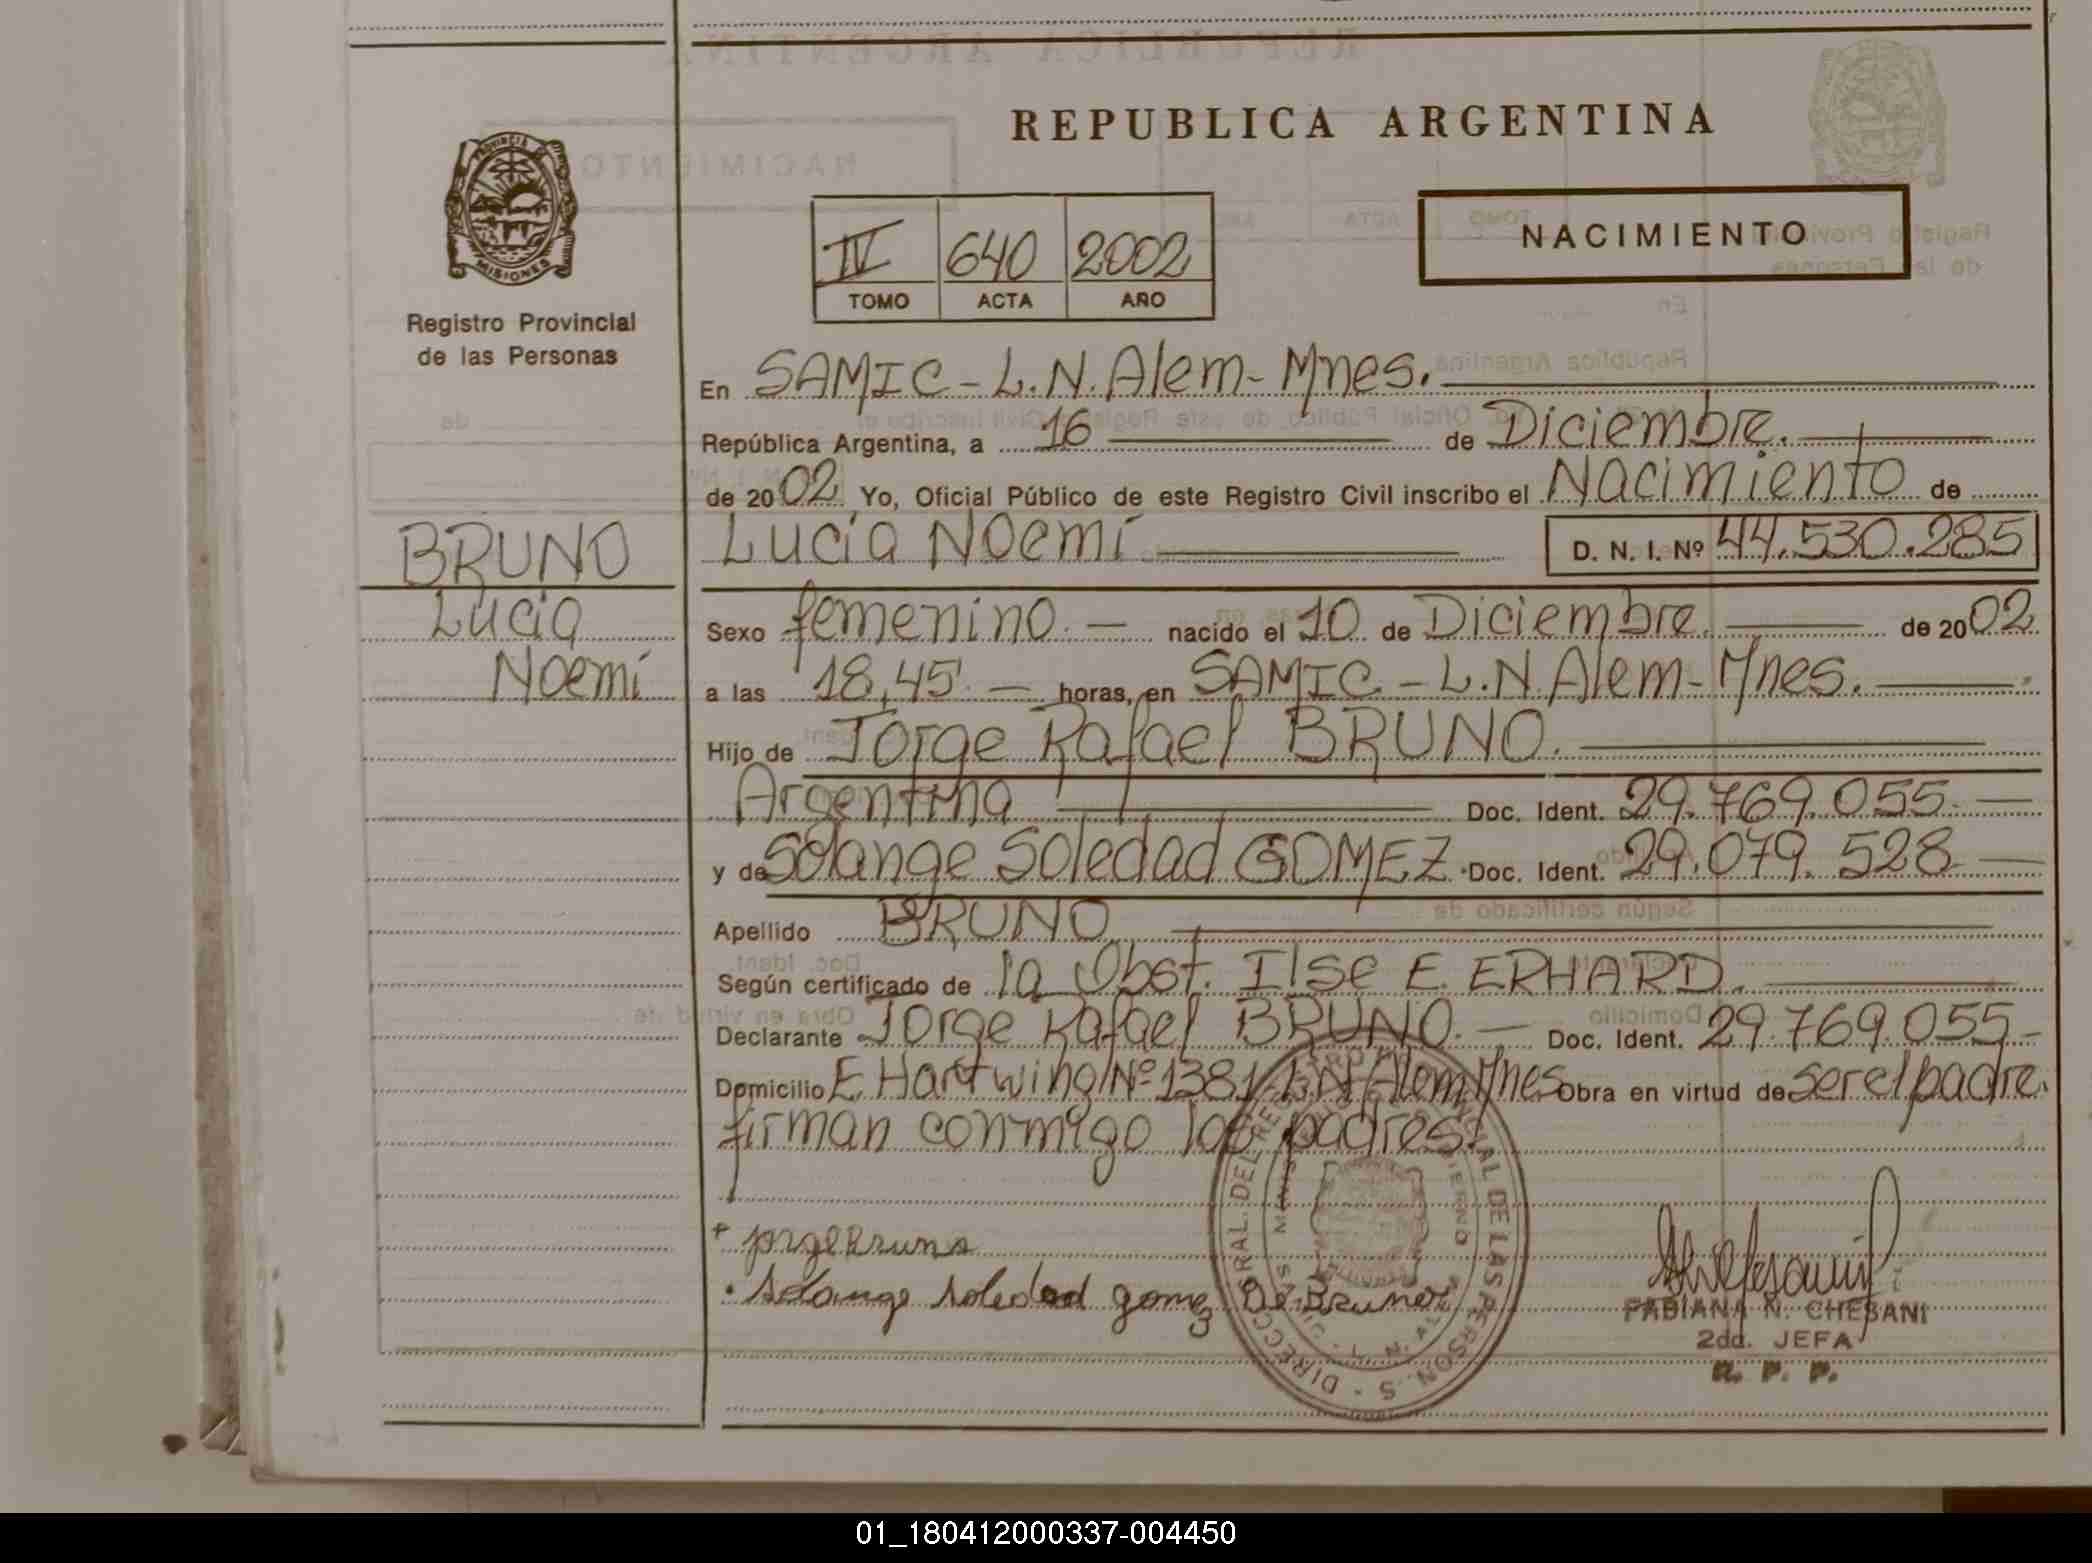 REPUBLICA ARGENTINA
PROVINCIA DE
MISIONES
Registro Provincial
de las Personas
IV 640 2002
TOMO ACTA AÑO
NACIMIENTO
En SAMIC - L.N. Alem - Mnes.
República Argentina, a 16 de Diciembre.
de 2002 Yo, Oficial Público de este Registro Civil inscribo el Nacimiento de
BRUNO
Lucía Noemí
D. N. I. Nº 44.530.285
Lucía
Noemí
Sexo femenino. — nacido el 10 de Diciembre. de 2002
a las 18,45 — horas, en SAMIC. - L.N. Alem - Mnes.
Hijo de Jorge Rafael BRUNO.
Argentina Doc. Ident. 29.769.055. —
y de Solange Soledad GOMEZ. Doc. Ident. 29.079.528 —
Apellido BRUNO
Según certificado de la Obst. Ilse E. ERHARD.
Declarante Jorge Rafael BRUNO. — Doc. Ident. 29.769.055 -
Domicilio E. Hartwing Nº 1381 L.N. Alem Mnes Obra en virtud de ser el padre.
firman conmigo los padres.
Jorge Bruno
Solange Soledad gomez De Bruno
FABIANA N. CHESANI
2da. JEFA
R. P. P.
01_180412000337-004450